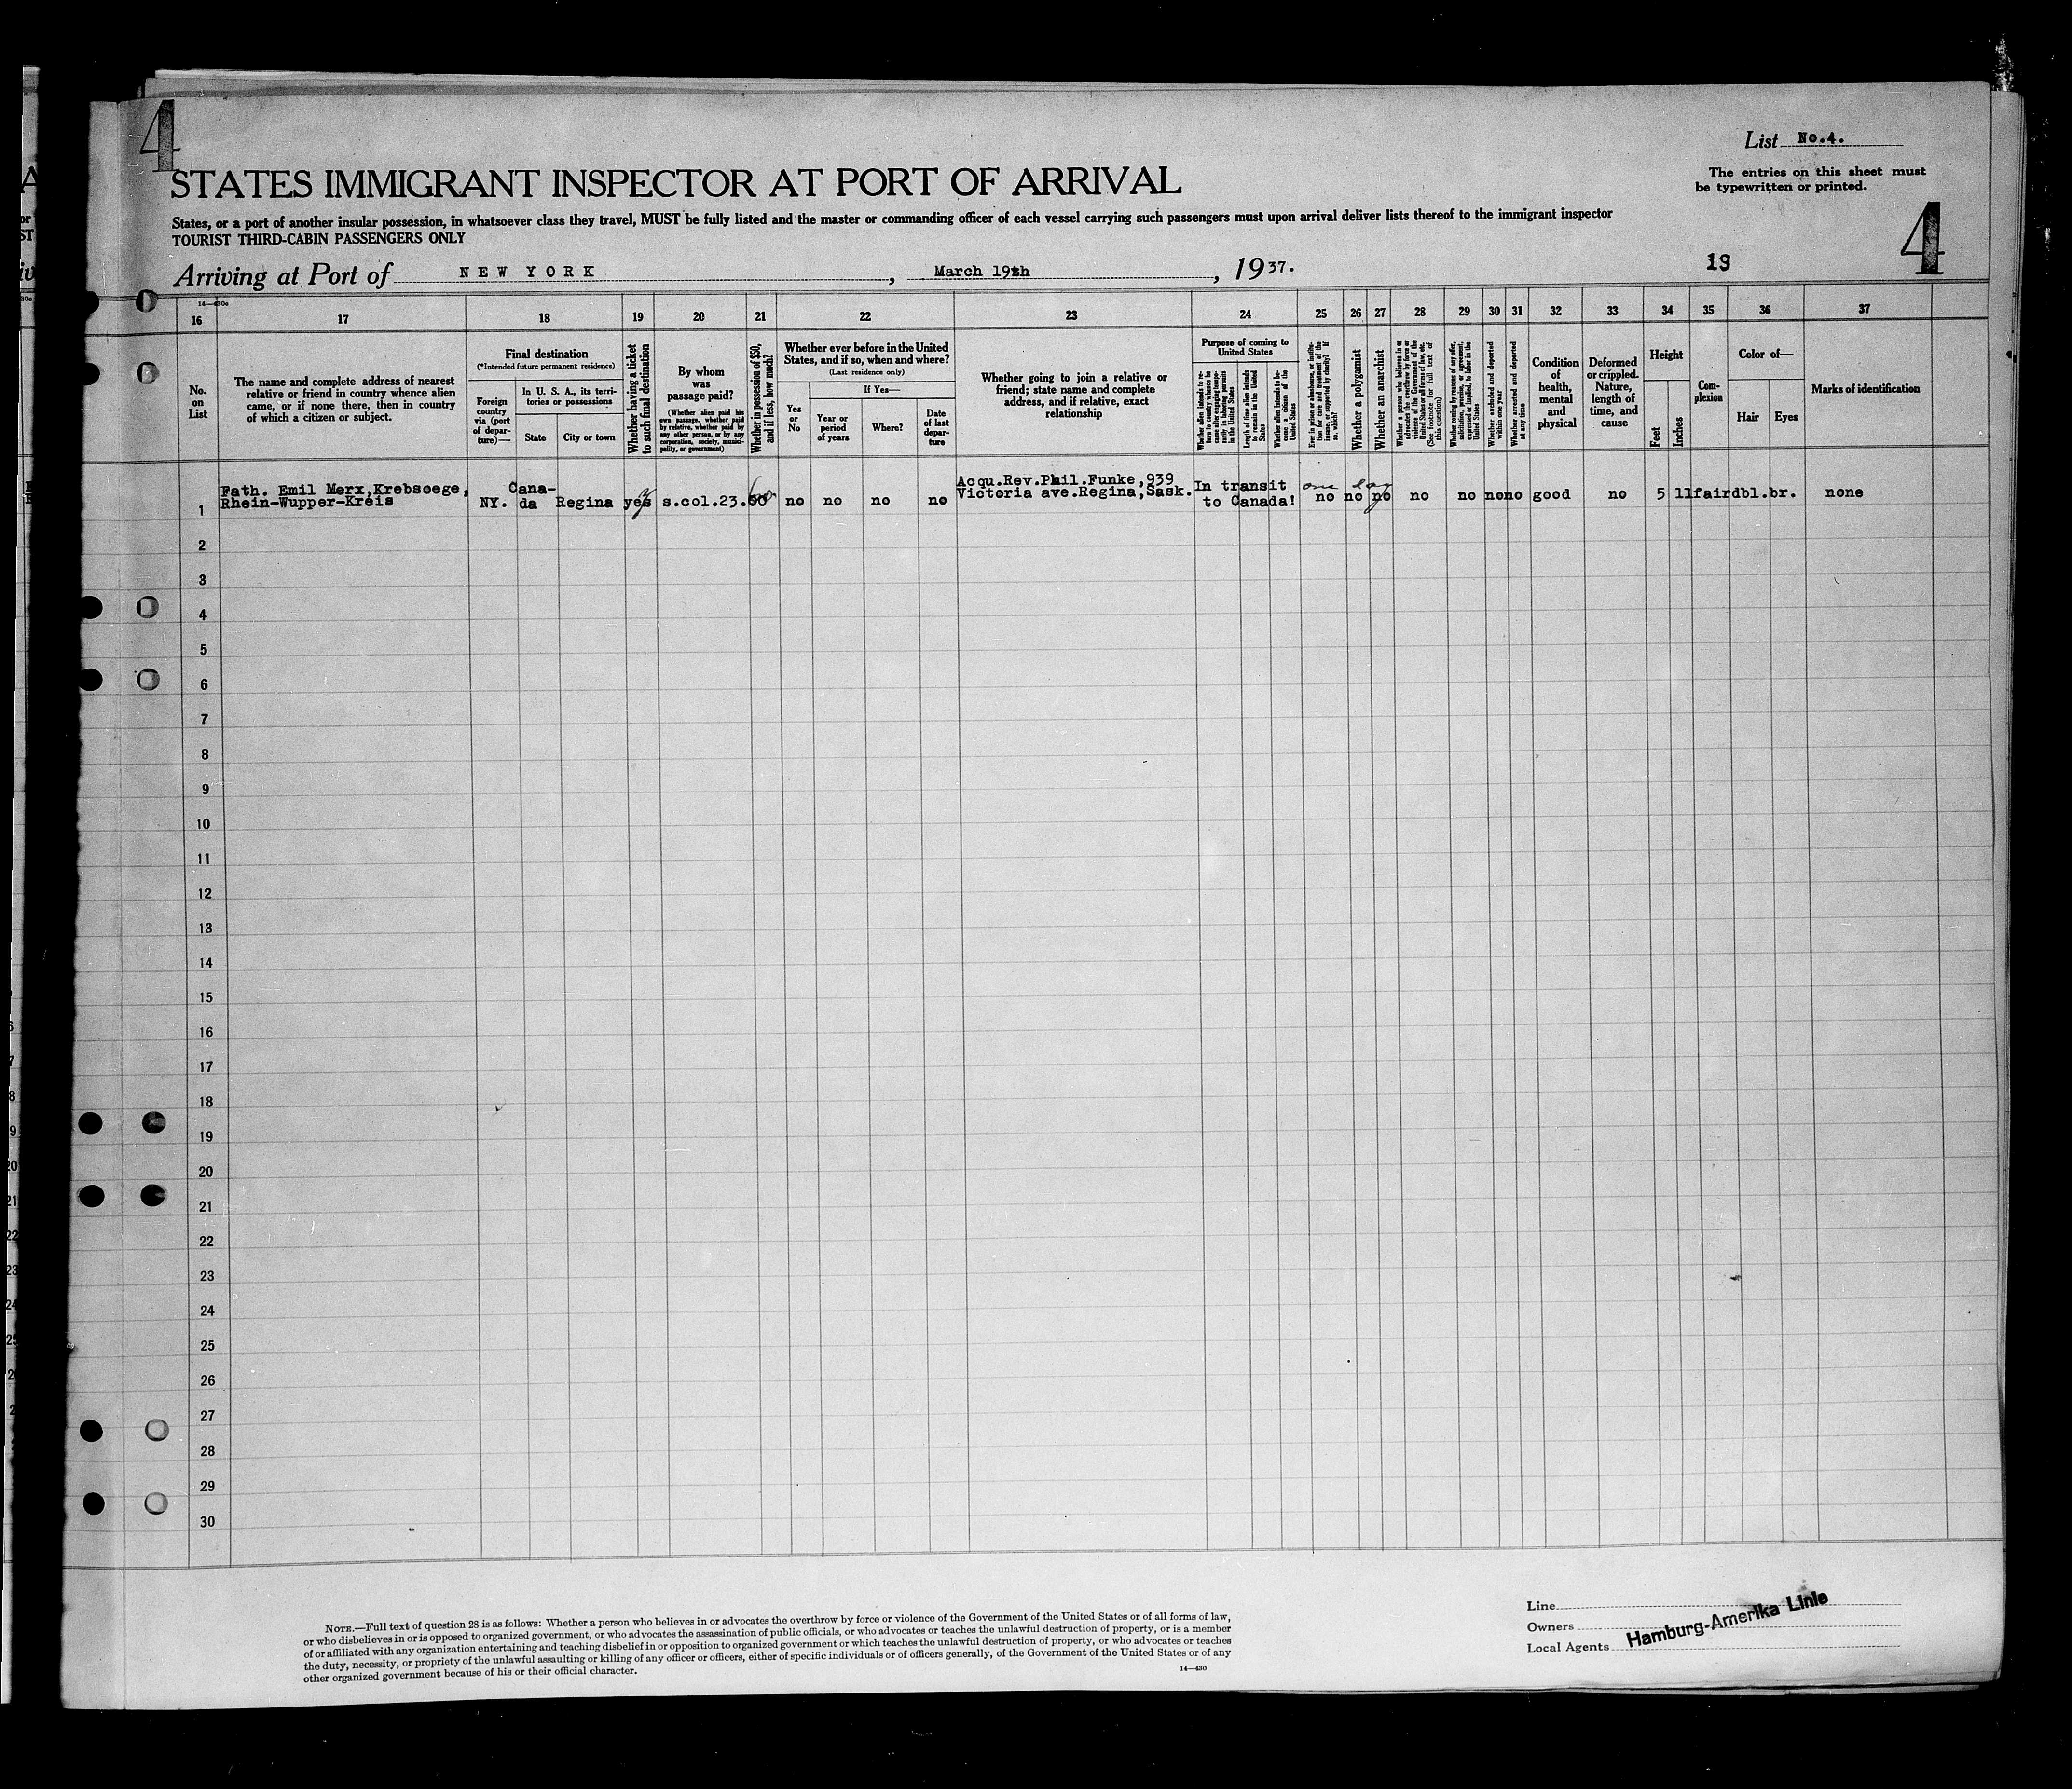 4
List No.4.
STATES IMMIGRANT INSPECTOR AT PORT OF ARRIVAL
The entries on this sheet must
be typewritten or printed.
States, or a port of another insular possession, in whatsoever class they travel, MUST be fully listed and the master or commanding officer of each vessel carrying such passengers must upon arrival deliver lists thereof to the immigrant inspector
TOURIST THIRD-CABIN PASSENGERS ONLY
4
Arriving at Port of NEW YORK, March 19th, 1937.
13
14—430c
16 17 18 19 20 21 22 23 24 25 26 27 28 29 30 31 32 33 34 35 36 37
No.
on
List
The name and complete address of nearest
relative or friend in country whence alien
came, or if none there, then in country
of which a citizen or subject.
Final destination
(*Intended future permanent residence)
Foreign
country
via (port
of depar-
ture)—
In U. S. A., its terri-
tories or possessions
State
City or town
Whether having a ticket
to such final destination
By whom
was
passage paid?
(Whether alien paid his
own passage, whether paid
by relative, whether paid by
any other person, or by any
corporation, society, munici-
pality, or government)
Whether in possession of $50,
and if less, how much?
Whether ever before in the United
States, and if so, when and where?
(Last residence only)
Yes
or
No
If Yes—
Year or
period
of years
Where?
Date
of last
depar-
ture
Whether going to join a relative or
friend; state name and complete
address, and if relative, exact
relationship
Purpose of coming to
United States
Whether alien intends to re-
turn to country whence he
came after engaging tempo-
rarily in laboring pursuits
in the United States
Length of time alien intends
to remain in the United
States
Whether alien intends to be-
come a citizen of the
United States
Ever in prison or almshouse, or institu-
tion for care and treatment of the
insane, or supported by charity? If
so, which?
Whether a polygamist
Whether an anarchist
Whether a person who believes in or
advocates the overthrow by force or
violence of the Government of the
United States or all forms of law, etc.
(See footnote for full text of
this question)
Whether coming by reasons of any offer,
solicitation, promise, or agreement,
expressed or implied, to labor in the
United States
Whether excluded and deported
within one year
Whether arrested and deported
at any time
Condition
of
health,
mental
and
physical
Deformed
or crippled.
Nature,
length of
time, and
cause
Height
Feet
Inches
Com-
plexion
Color of—
Hair
Eyes
Marks of identification
1 Fath. Emil Merx,Krebsoege,
Rhein-Wupper-Kreis
NY.
Cana-
da
Regina yes s.col.23. no no no no
Acqu.Rev.Phil.Funke,939
Victoria ave.Regina,Sask.
In transit
to Canada!
one day
no no no no no no no good no 5 11 fair dbl. br. none
2
3
4
5
6
7
8
9
10
11
12
13
14
15
16
17
18
19
20
21
22
23
24
25
26
27
28
29
30
NOTE.—Full text of question 28 is as follows: Whether a person who believes in or advocates the overthrow by force or violence of the Government of the United States or of all forms of law,
or who disbelieves in or is opposed to organized government, or who advocates the assassination of public officials, or who advocates or teaches the unlawful destruction of property, or is a member
of or affiliated with any organization entertaining and teaching disbelief in or opposition to organized government or which teaches the unlawful destruction of property, or who advocates or teaches
the duty, necessity, or propriety of the unlawful assaulting or killing of any officer or officers, either of specific individuals or of officers generally, of the Government of the United States or of any
other organized government because of his or their official character.
14—430
Line
Owners
Local Agents
Hamburg-Amerika Linie